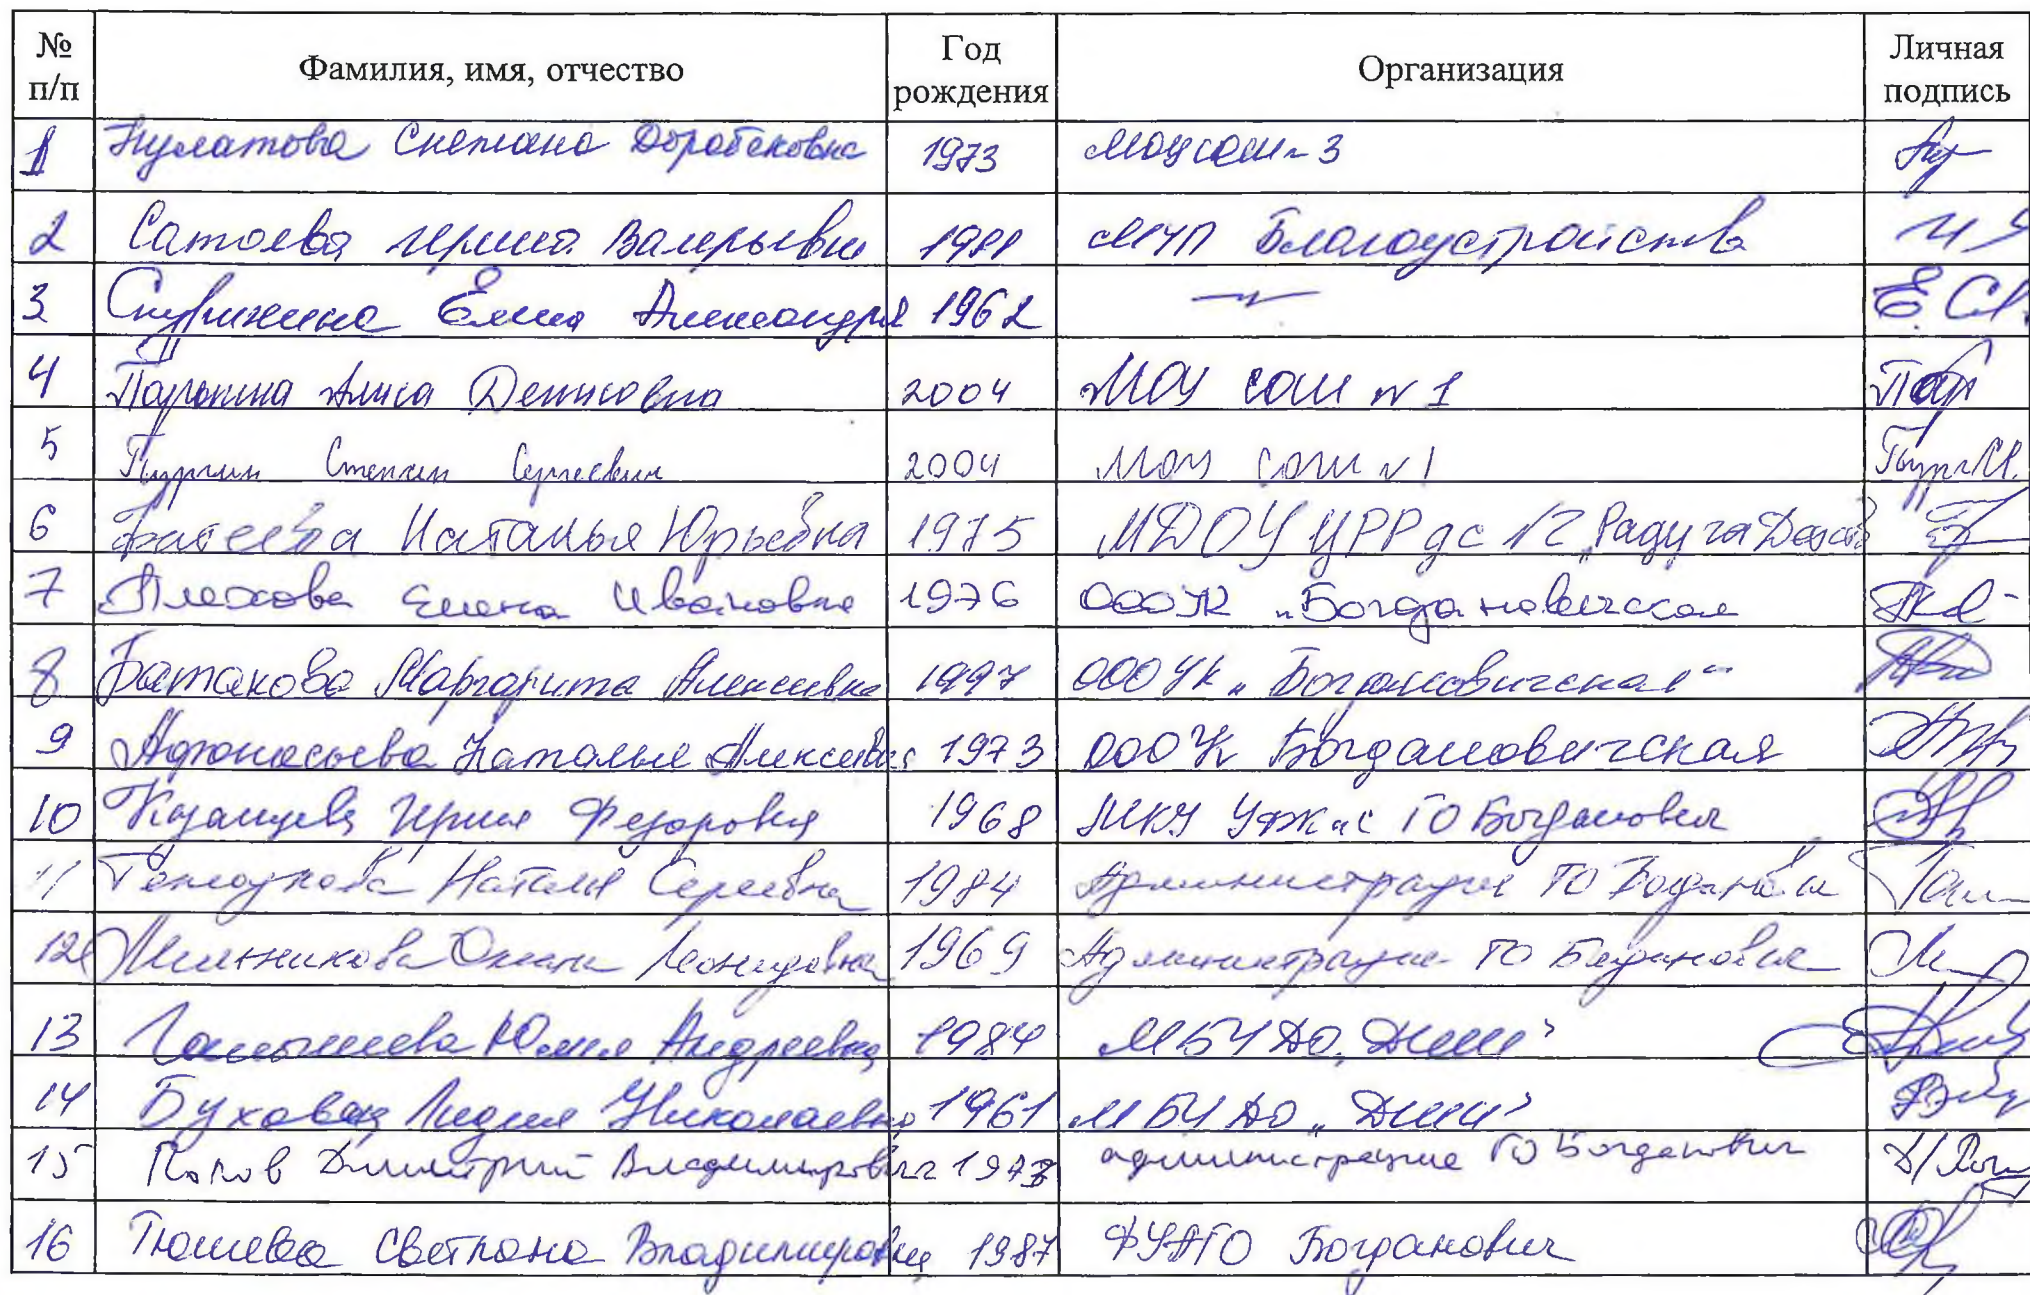 № п/п Фамилия, имя, отчество Год рождения Организация Личная подпись
1 Снежана 1973 МОУ СОШ-3
2 Ирина Валерьевна МУП Благоустройства
3 Елена Александр 1962
4 Алиса Денисовна 2004 МОУ СОШ №1
5 Пургин Степан Сергеевич 2004 МОУ СОШ №1
6 Фатеева Наталья Юрьевна 1975 МДОУ ЦРР дс №2 „Радуга Детства
7 Плехова Елена Ивановна 1976 ООО УК „Богдановичская
8 Батакова Маргарита Алексеевна 1997 ООО УК „Богдановичская“
9 Афонасьева Наталья Алексеевна 1973 ООО УК Богдановичская
10 Казанцева Ирина Федоровна 1968 МКУ УМЖ ГО Богданович
11 Наталья Сергеевна 1984 Администрация ГО Богданович
12 Мельникова Оксана Леонидовна 1969 Администрация ГО Богданович
13 Юлия Андреевна 1984 МБУ ДО „ДШИ“
14 Лидия Николаевна 1961 МБУ ДО „ДШИ“
15 Попов Дмитрий Владимирович администрация ГО Богданович
16 Тюшева Светлана Владимировна 1987 ФУАГО Богданович